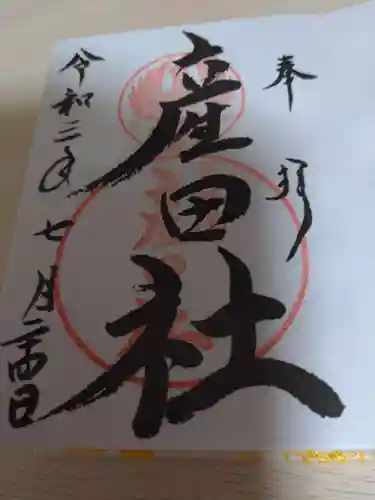 奉拝
産田社
令和三年七月二十四日